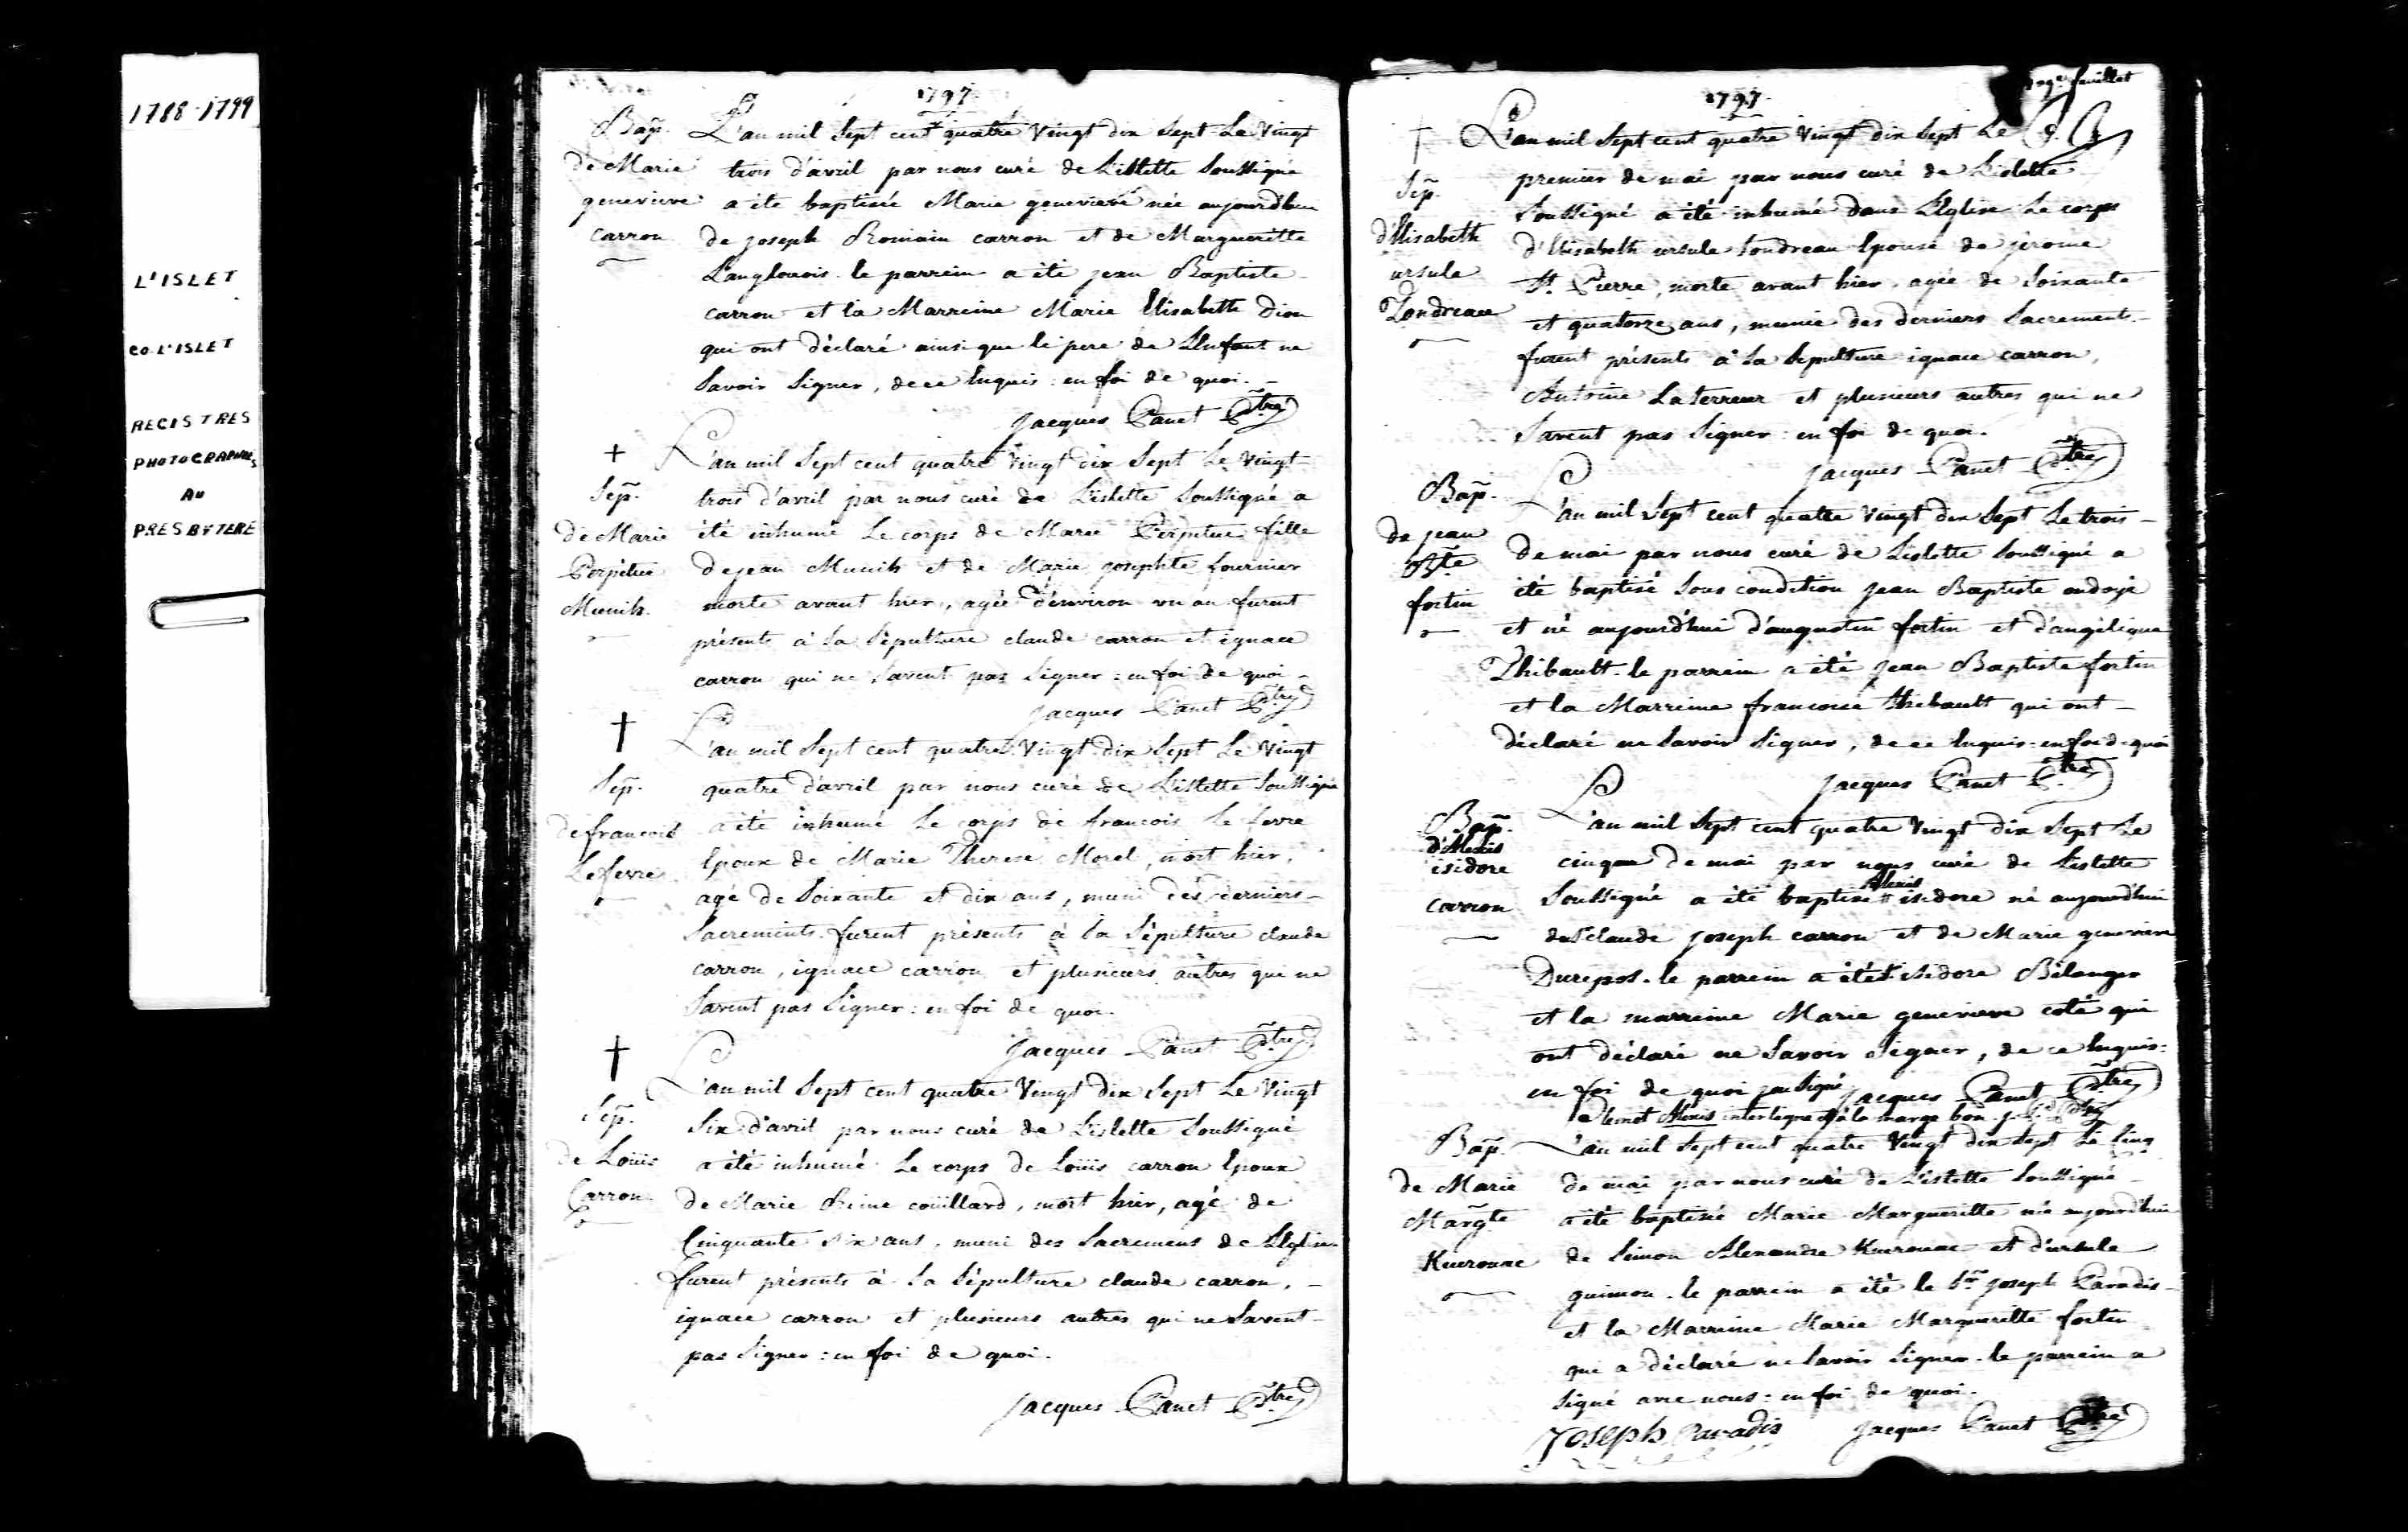 1788-1799
L'ISLET
CO. L'ISLET
REGISTRES
PHOTOGRAPHIES
AU
PRESBYTERE
1797.
Bap.
de Marie
genevieve
carron
L'an mil Sept cent quatre Vingt dix Sept Le Vingt
trois d'avril par nous curé de L'islette Soussigné
a été baptisée Marie genevieve née aujourdhui
de joseph Romain carron et de Marguerite
L'anglouois. le parrein a été jean Baptiste
carron et la Marreine Marie Elisabeth Dion
qui ont déclaré ainsi que le pere de L'enfant ne
Savoir Signer, de ce Enquis : en foi de quoi.
Jacques Panet Ptre
+
Sep.
de Marie
Perpétue
Miunih.
L'an mil Sept cent quatre Vingt dix Sept Le Vingt
trois d'avril par nous curé de L'islette Soussigné a
été inhumé Le corps de Marie Perpétue fille
de jean Miunih et de Marie josephte fournier
morte avant hier, agée d'environ un an. furent
présents à la Sépulture claude carron et ignace
carron qui ne Savent pas Signer : en foi de quoi
Jacques Panet Ptre
+
Sep.
de francois
Lefevre
L'an mil Sept cent quatre Vingt dix Sept Le Vingt
quatre d'avril par nous curé de L'islette Soussigné
a été inhumé Le corps de francois Le fevre
Epoux de Marie Therese Morel, mort hier,
agé de Soixante et dix ans, muni des derniers
Sacrements. furent présents à la Sépulture claude
carron, ignace carrion et plusieurs autres qui ne
Savent pas Signer : en foi de quoi.
Jacques Panet Ptre
+
Sep.
de Loüis
Carron
L'an mil Sept cent quatre Vingt dix Sept Le Vingt
Six d'avril par nous curé de L'islette Soussigné
a été inhumé Le corps de Loüis carron Epoux
de Marie Reine couillard, mort hier, agé de
Cinquante Six ans, muni des Sacremens de L'Eglise
furent présents à la Sépulture claude carron,
ignace carron et plusieurs autres qui ne Savent
pas Signer : en foi de quoi.
Jacques Panet Ptre
feuillet
1797.
+
Sep.
d'Elisabeth
ursula
Londreau
L'an mil Sept cent quatre Vingt dix Sept Le
premier de mai par nous curé de L'islette
Soussigné a été inhumé dans L'Eglise Le corps
d'Elisabeth ursule Londreau Epouse de jérome
St. Pierre, morte avant hier, agée de Soixante
et quatorze ans, munie des derniers Sacrements.
furent présents à la Sepulture ignace carron,
Antoine Laterreur et plusieurs autres qui ne
Savent pas Signer : en foi de quoi.
Jacques Panet Ptre
Bap.
de jean
Bte
fortin
L'an mil Sept cent quatre Vingt dix Sept Le trois
de mai par nous curé de L'islette Soussigné a
été baptisé Sous condition jean Baptiste ondoyé
et né aujourd'hui d'augustin fortin et d'angélique
Thibault. le parrein a été jean Baptiste fortin
et la Marreine francoise thibault qui ont
déclaré ne Savoir Signer, de ce Enquis : en foi de quoi
Jacques Panet Ptre
Bap.
d'Alexis
isidore
carron
L'an mil Sept cent quatre Vingt dix Sept Le
cinque de mai par nous curé de L'islette
Alexis
Soussigné a été baptisé isidore né aujourd'hui
de claude joseph carron et de Marie genevieve
Durepos. le parrein a été isidore Bélanger
et la marreine Marie genevieve coté qui
ont déclaré ne Savoir Signer, de ce Enquis :
en foi de quoi jai Signé Jacques Panet Ptre
le mot Alexis interligne et à la marge bon. Ptre
Bap.
de Marie
Margte
Kuerouac
L'an mil Sept cent quatre Vingt dix Sept Le Cinq
de mai par nous curé de L'islette Soussigné
a été baptisée Marie Marguerite née aujourdhui
de Simon Alexandre Kuerouac et d'ursule
guimon. le parrein a été le Sr. joseph Paradis
et la Marreine Marie Marguerite fortin
qui a déclaré ne Savoir Signer. le parrein a
Signé avec nous : en foi de quoi.
Joseph Paradis Jacques Panet Ptre